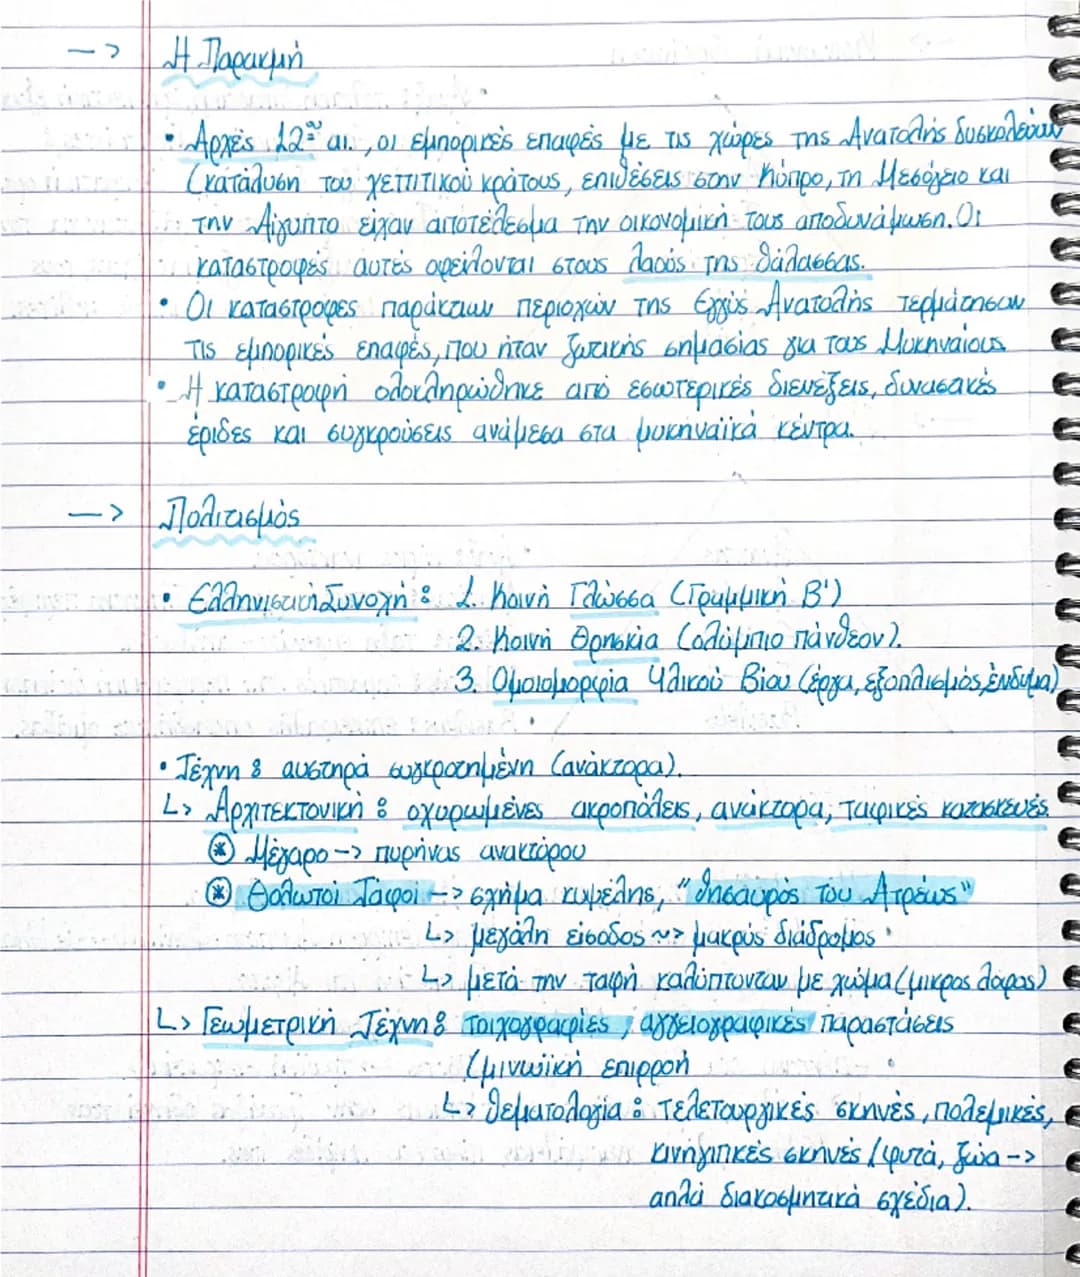 —> Η Παρακμή
• Αρχές 12ου αι., οι εμπορικές επαφές με τις χώρες της Ανατολής δυσκολεύουν
(κατάλυση του χεττιτικού κράτους, επιθέσεις στην Κύπρο, τη Μεσόγειο και
την Αίγυπτο είχαν αποτέλεσμα την οικονομική τους αποδυνάμωση. Οι
καταστροφές αυτές οφείλονται στους λαούς της θάλασσας.
• Οι καταστροφές παράκτιων περιοχών της Εγγύς Ανατολής τερμάτησαν
τις εμπορικές επαφές, που ήταν ζωτικής σημασίας για τους Μυκηναίους
• Η καταστροφή ολοκληρώθηκε από εσωτερικές διενέξεις, δυνασακές
έριδες και συγκρούσεις ανάμεσα στα μυκηναϊκά κέντρα.
—> Πολιτισμός
• Ελληνιστική Συνοχή : 1. Κοινή Γλώσσα (Γραμμική Β')
2. Κοινή Θρησκία (ολύμπιο πάνθεον).
3. Ομοιομορφία Υλικού Βίου (έργα, εξοπλισμός, ένδυμα)
• Τέχνη : αυστηρά συγκροτημένη (ανάκτορα).
↳ Αρχιτεκτονική : οχυρωμένες ακροπόλεις, ανάκτορα, ταφικές κατασκευές.
⊛ Μέγαρο —> πυρήνας ανακτόρου
⊛ Θολωτοί Τάφοι —> σχήμα κυψέλης, "θησαυρός του Ατρέως"
↳ μεγάλη είσοδος ~> μακρύς διάδρομος
↳ μετά την ταφή καλύπτονταν με χώμα (μικρος λόφος)
↳ Γεωμετρική Τέχνη : τοιχογραφίες, αγγειογραφικές παραστάσεις
(μινωϊκή επιρροή
↳ θεματολογία : τελετουργικές σκηνές, πολεμικές,
κινηγιτικές σκηνές (φυτά, ζώα —>
απλά διακοσμητικά σχέδια).